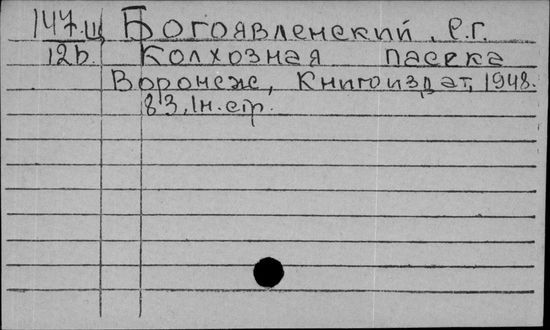 147.Ш Богоявленский, С.Г.
12b. Колхозная пасека
Воронеж, Книгоиздат, 1948.
83, 1н. стр.